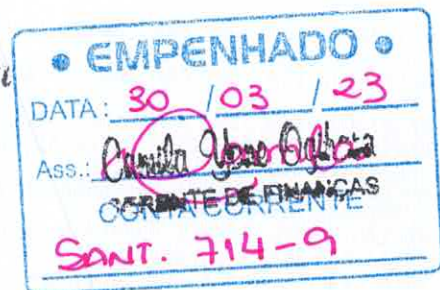 • EMPENHADO •
DATA: 30 / 03 / 23
Ass.: Camila
GERENTE DE FINANÇAS
CONTA CORRENTE
SANT. 714-9